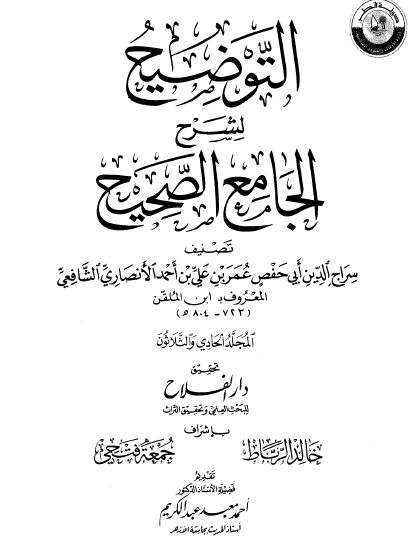 التوضيح
لشرح
الجامع الصحيح
تصنيف
سراج الدين أبي حفص عمر بن علي بن أحمد الأنصاري الشافعي
المعروف بـ ابن الملقن
(٧٢٣-٨٠٤ هـ)
المجلد الحادي والثلاثون
تحقيق
دار الفلاح
للبحث العلمي وتحقيق التراث
بإشراف
خالد الرباط جمعة فتحي
تقديم
فضيلة الأستاذ الدكتور
أحمد معبد عبد الكريم
أستاذ الحديث بجامعة الأزهر